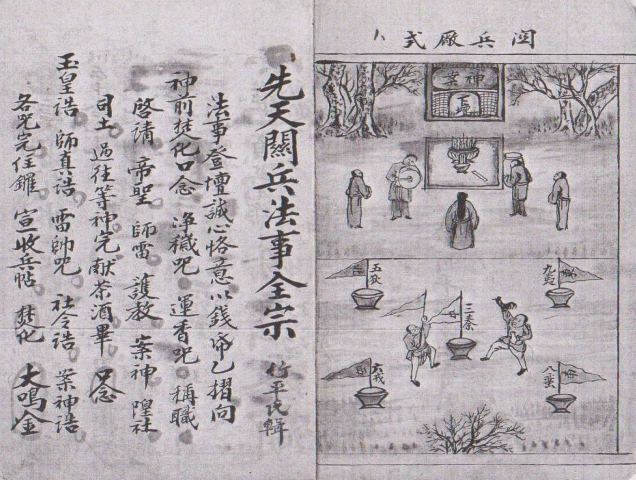 関兵廠式
神案
九夷
五狄
三秦
八蛮
六戎
先天關兵法事全宗 竹平氏輯
法事登壇誠心恪意以錢帋乙摺向
神前焚化口念 净穢呪 運香呪 稱職
啓請 帝聖 師雷 護教 案神 隍社
司土 過往等神完献茶酒畢 口念
玉皇誥 師真誥 雷帥呪 社令誥 案神誥
各呪完住鑼 宣收兵帖 焚化 大鳴金